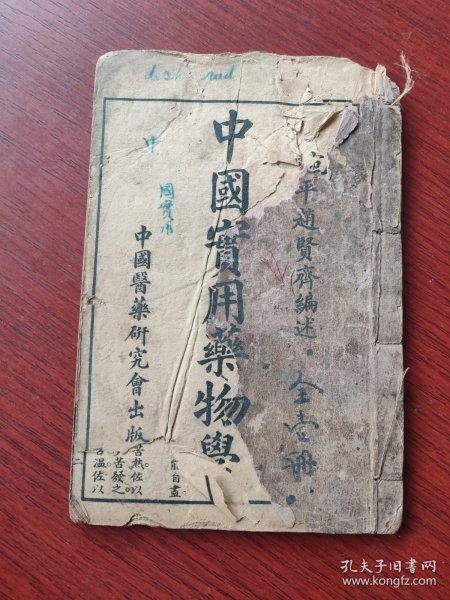 desk red
平趙賢齊編述
全壹冊
中國實用藥物學
中
國實用
中國醫藥研究會出版
苦熱佐以
苦發之
溫佐以
自盡
孔夫子旧书网
www.kongfz.com